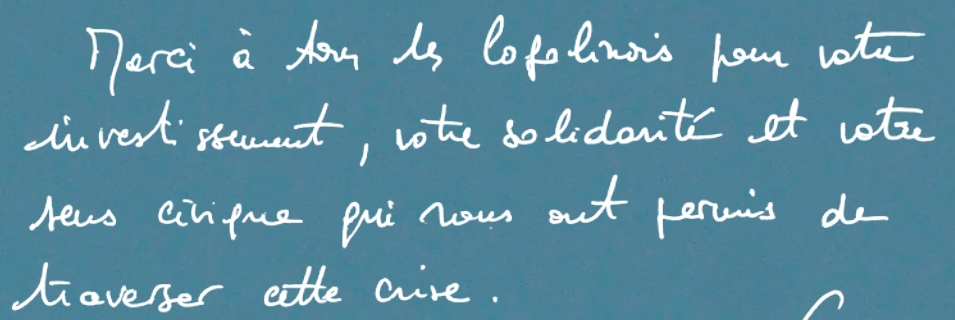 Merci à tous les Cogolinois pour votre
investissement, votre solidarité et votre
sens civique qui nous ont permis de
traverser cette crise.